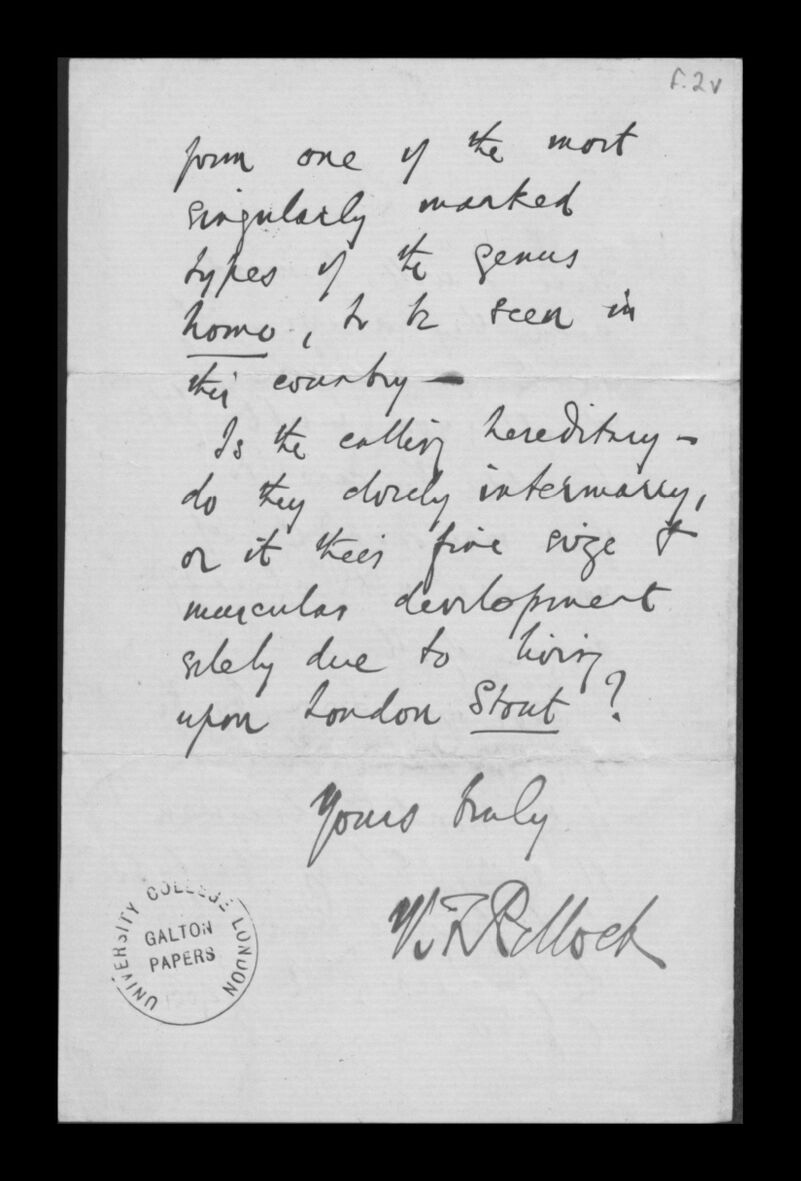 f.2v
form one of the most
singularly marked
types of the genus
homo, to be seen in
this country —
Is the calling hereditary —
do they closely intermarry,
or is their fine size &
muscular development
solely due to living
upon London Stout ?
Yours truly
W F Pollock
UNIVERSITY COLLEGE LONDON
GALTON
PAPERS